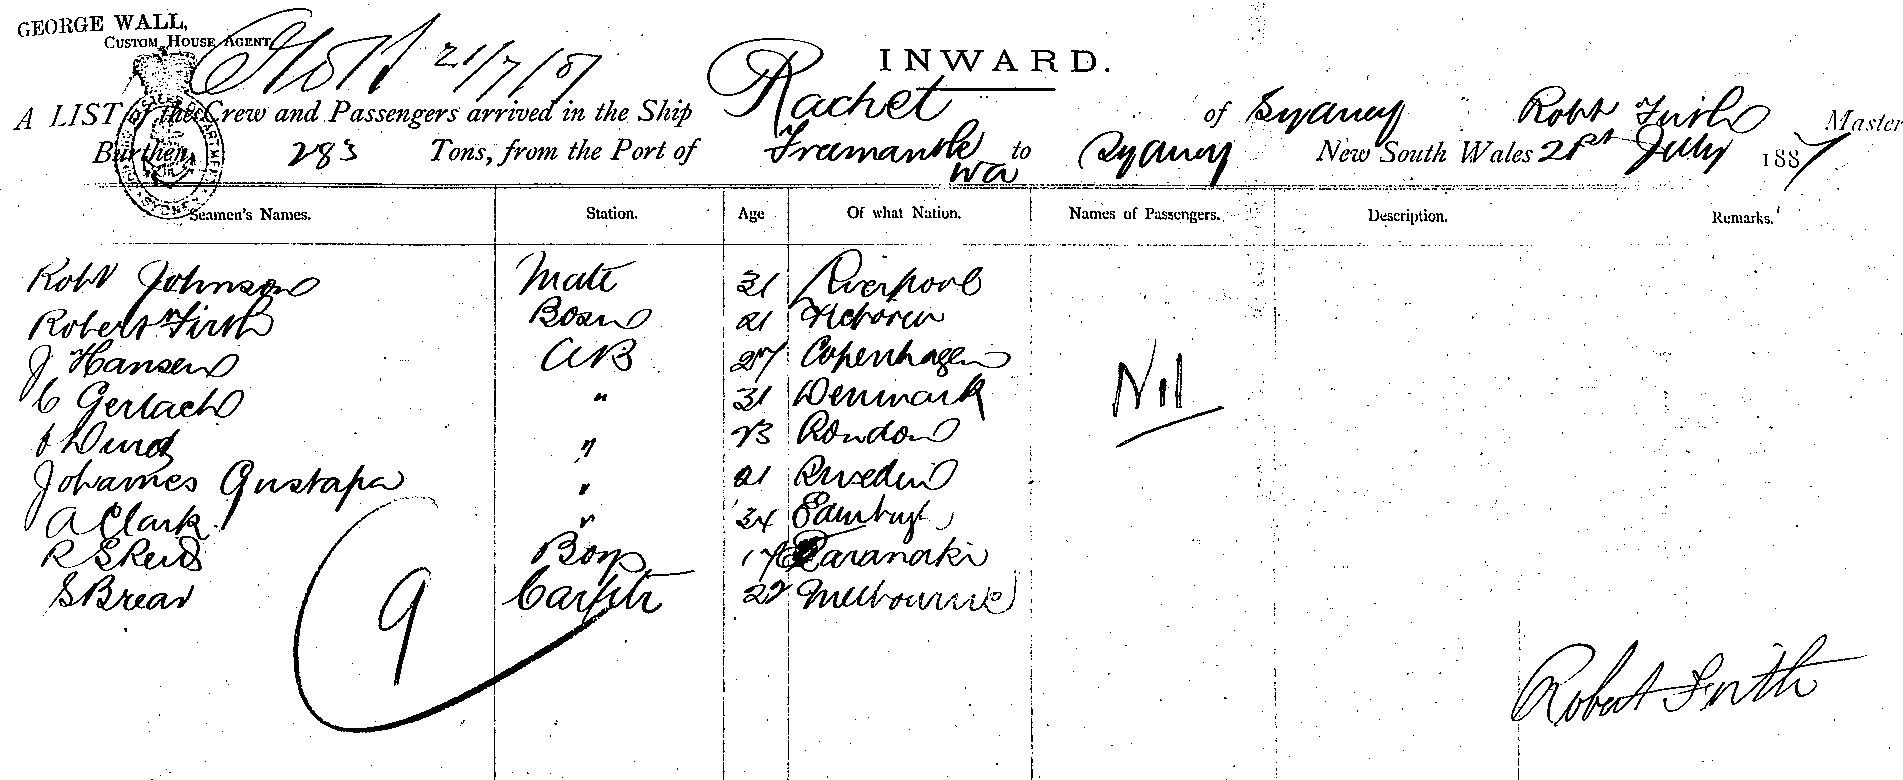 GEORGE WALL,
CUSTOM HOUSE AGENT
21/7/87
INWARD.
A LIST of the Crew and Passengers arrived in the Ship Rachet of Sydney Robt Firth Master
Burthen 283 Tons, from the Port of Freemantle WA to Sydney New South Wales 21st July 1887
Seamen's Names. Station. Age Of what Nation. Names of Passengers. Description. Remarks.
Robt Johnson Mate 31 Liverpool
Robert Firth Bosn 21 Victoria
J Hansen AB 27 Copenhagen
C Gerlach " 31 Denmark
" 23 London
Johannes Gustapa " 21 Sweden
A Clark " 34
R S Reid Boy 17 Taranaki
S Brear Carptr 22 Melbourne
Nil
9
Robert Firth